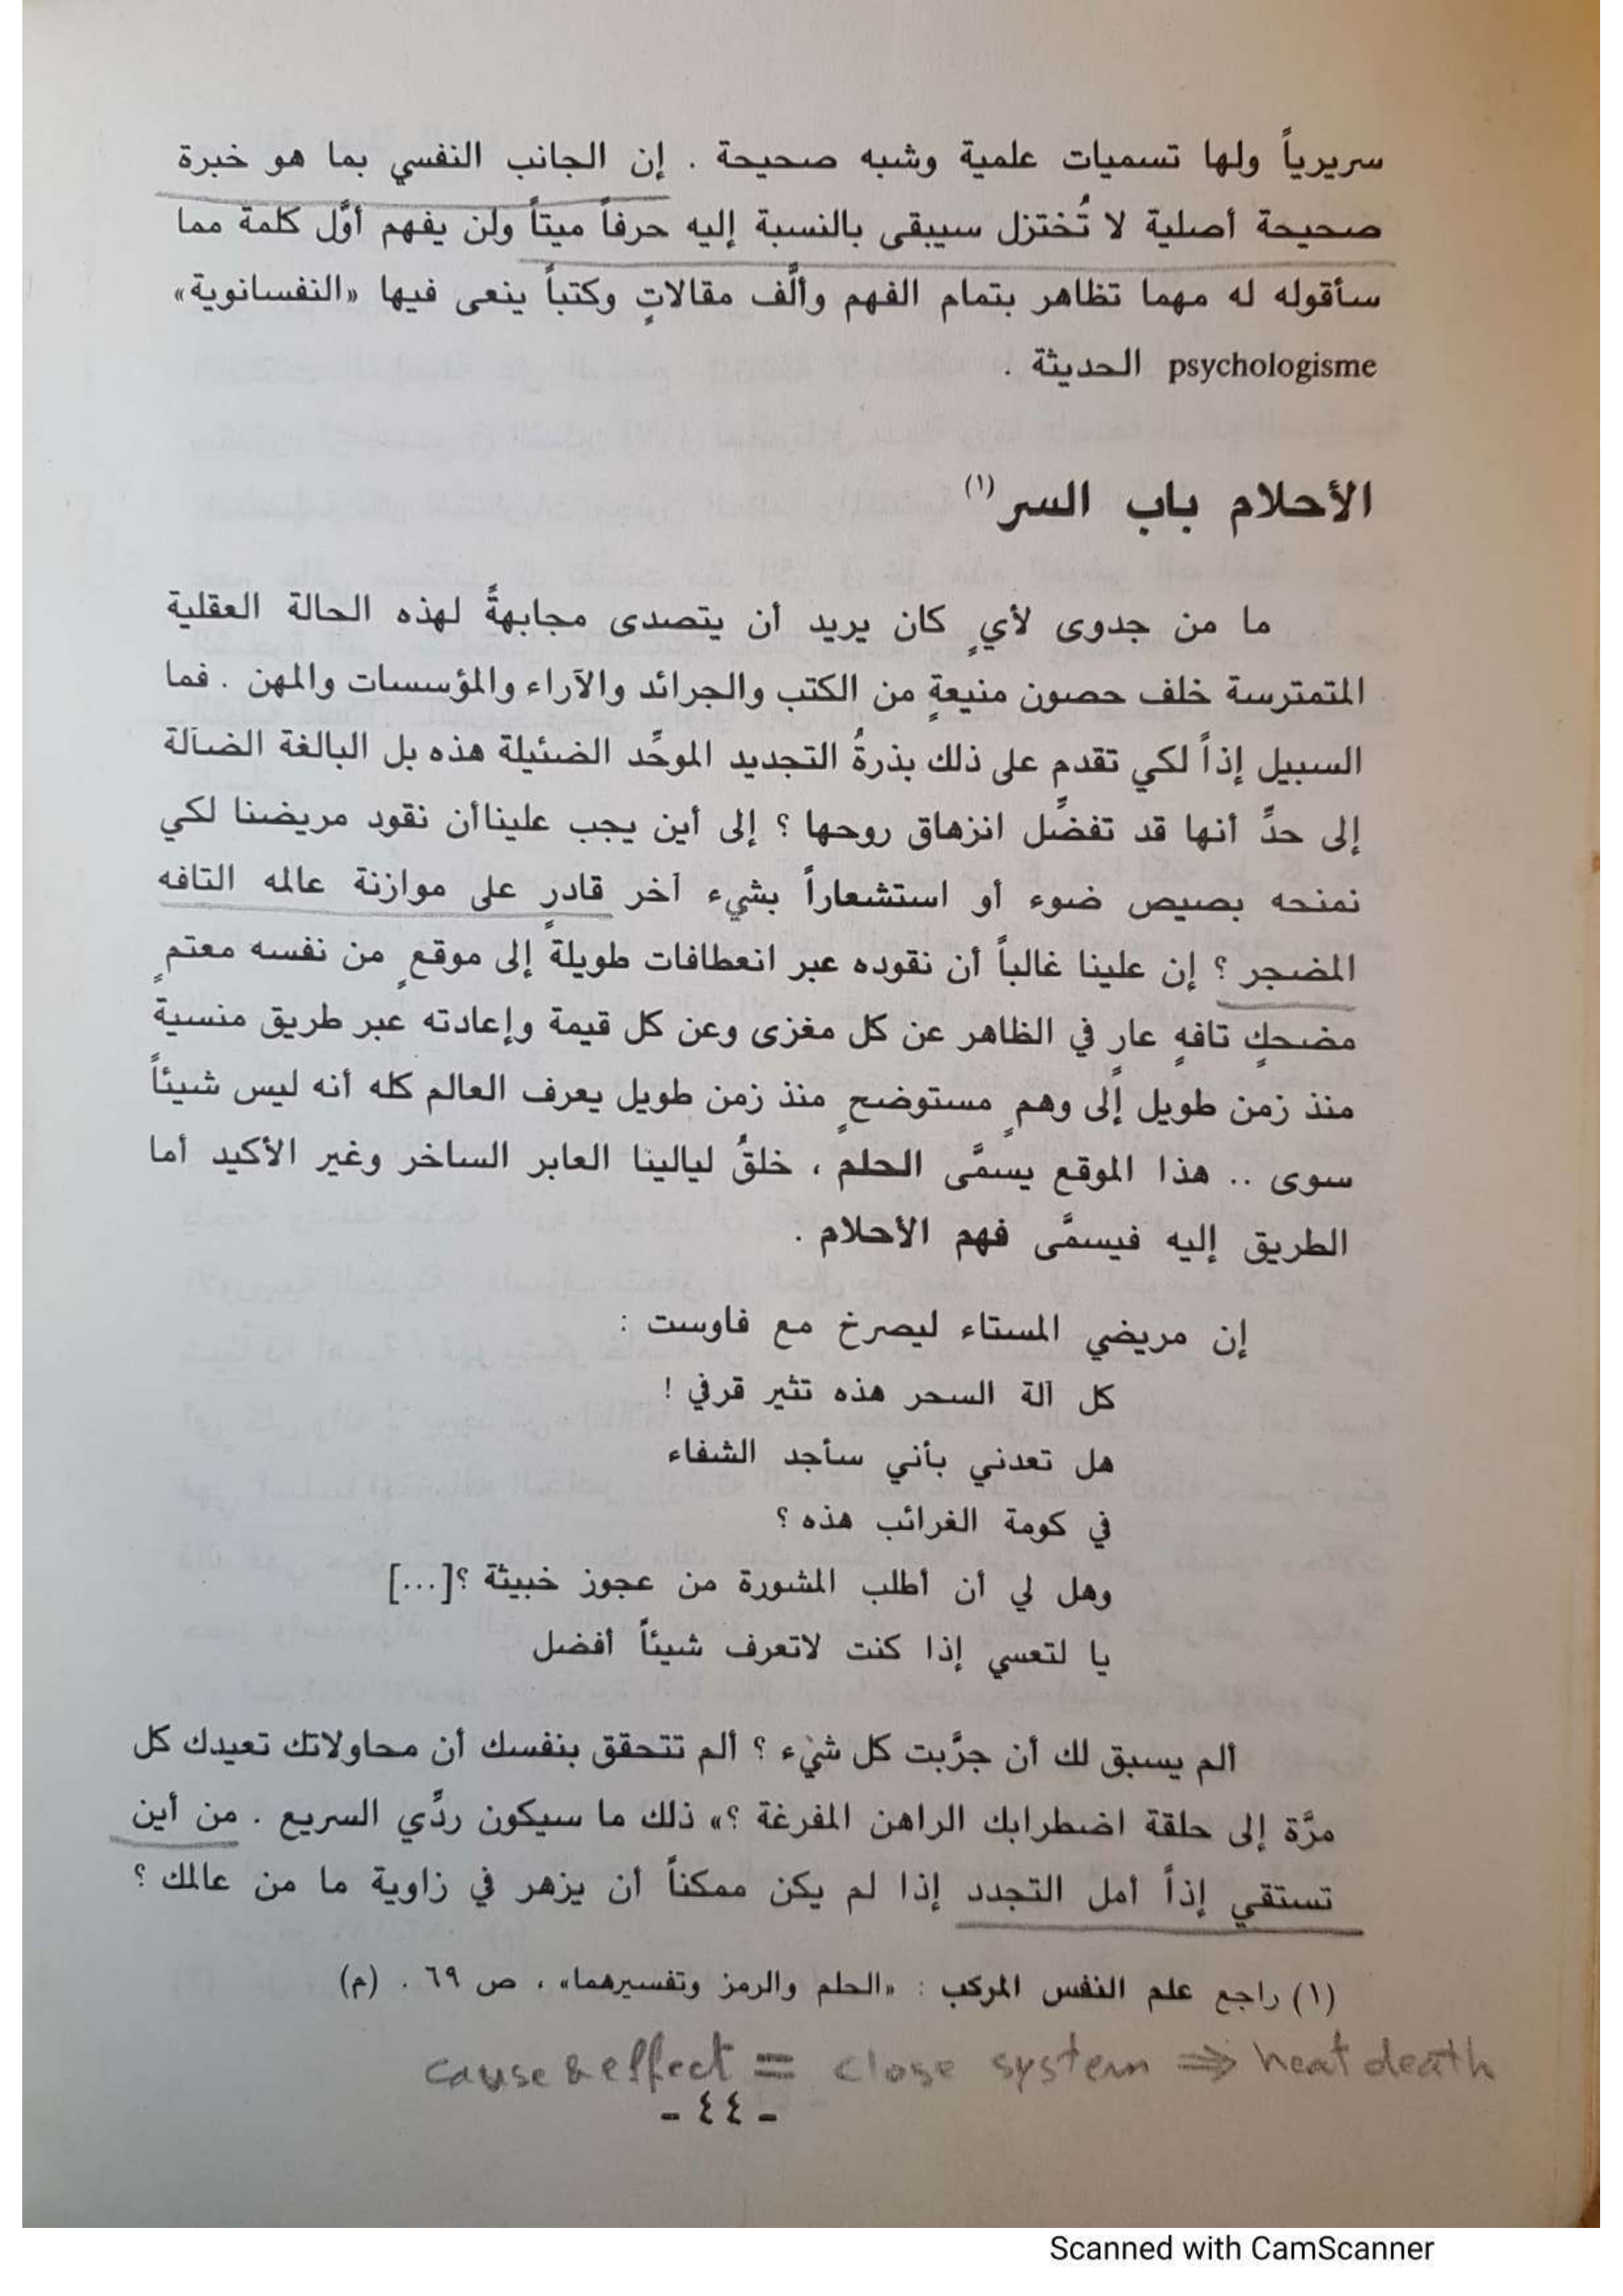 سريرياً ولها تسميات علمية وشبه صحيحة . إن الجانب النفسي بما هو خبرة
صحيحة أصلية لا تُختزل سيبقى بالنسبة إليه حرفاً ميتاً ولن يفهم أوَّل كلمة مما
سأقوله له مهما تظاهر بتمام الفهم وألَّف مقالاتٍ وكتباً ينعى فيها «النفسانوية»
psychologisme الحديثة .
الأحلام باب السر (١)
ما من جدوى لأيٍ كان يريد أن يتصدى مجابهةً لهذه الحالة العقلية
المتمترسة خلف حصون منيعةٍ من الكتب والجرائد والآراء والمؤسسات والمهن . فما
السبيل إذاً لكي تقدم على ذلك بذرةُ التجديد الموحِّد الضئيلة هذه بل البالغة الضآلة
إلى حدٍّ أنها قد تفضِّل انزهاق روحها ؟ إلى أين يجب عليناأن نقود مريضنا لكي
نمنحه بصيص ضوء أو استشعاراً بشيء آخر قادرٍ على موازنة عالمه التافه
المضجر ؟ إن علينا غالباً أن نقوده عبر انعطافات طويلةٍ إلى موقعٍ من نفسه معتمٍ
مضحكٍ تافهٍ عارٍ في الظاهر عن كل مغزى وعن كل قيمة وإعادته عبر طريق منسيةٍ
منذ زمن طويل إلى وهمٍ مستوضحٍ منذ زمن طويل يعرف العالم كله أنه ليس شيئاً
سوى .. هذا الموقع يسمَّى الحلم ، خلقُ ليالينا العابر الساخر وغير الأكيد أما
الطريق إليه فيسمَّى فهم الأحلام .
إن مريضي المستاء ليصرخ مع فاوست :
كل آلة السحر هذه تثير قرفي !
هل تعدني بأني سأجد الشفاء
في كومة الغرائب هذه ؟
وهل لي أن أطلب المشورة من عجوز خبيثة ؟[...]
يا لتعسي إذا كنت لاتعرف شيئاً أفضل
ألم يسبق لك أن جرَّبت كل شيء ؟ ألم تتحقق بنفسك أن محاولاتك تعيدك كل
مرَّة إلى حلقة اضطرابك الراهن المفرغة ؟» ذلك ما سيكون ردِّي السريع . من أين
تستقي إذاً أمل التجدد إذا لم يكن ممكناً أن يزهر في زاوية ما من عالمك ؟
(١) راجع علم النفس المركب : «الحلم والرمز وتفسيرهما» ، ص ٦٩ . (م)
cause & effect = close system ⇒ heat death
- ٤٤ -
Scanned with CamScanner